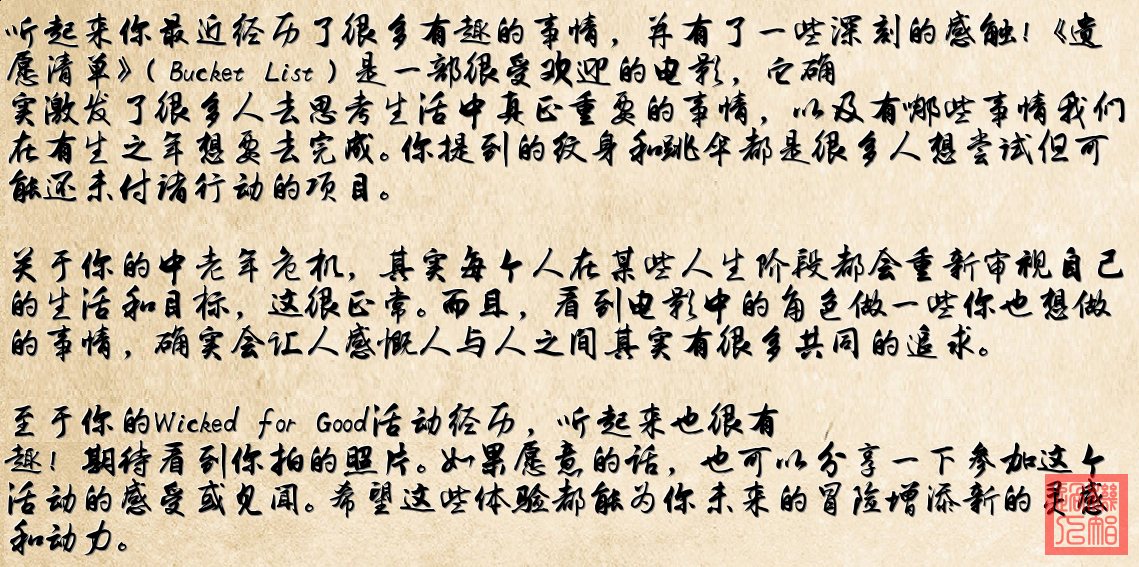 听起来你最近经历了很多有趣的事情，并有了一些深刻的感触！《遗
愿清单》（Bucket List）是一部很受欢迎的电影，它确
实激发了很多人去思考生活中真正重要的事情，以及有哪些事情我们
在有生之年想要去完成。你提到的纹身和跳伞都是很多人想尝试但可
能还未付诸行动的项目。
关于你的中老年危机，其实每个人在某些人生阶段都会重新审视自己
的生活和目标，这很正常。而且，看到电影中的角色做一些你也想做
的事情，确实会让人感慨人与人之间其实有很多共同的追求。
至于你的Wicked for Good活动经历，听起来也很有
趣！期待看到你拍的照片。如果愿意的话，也可以分享一下参加这个
活动的感受或见闻。希望这些体验都能为你未来的冒险增添新的灵感
和动力。